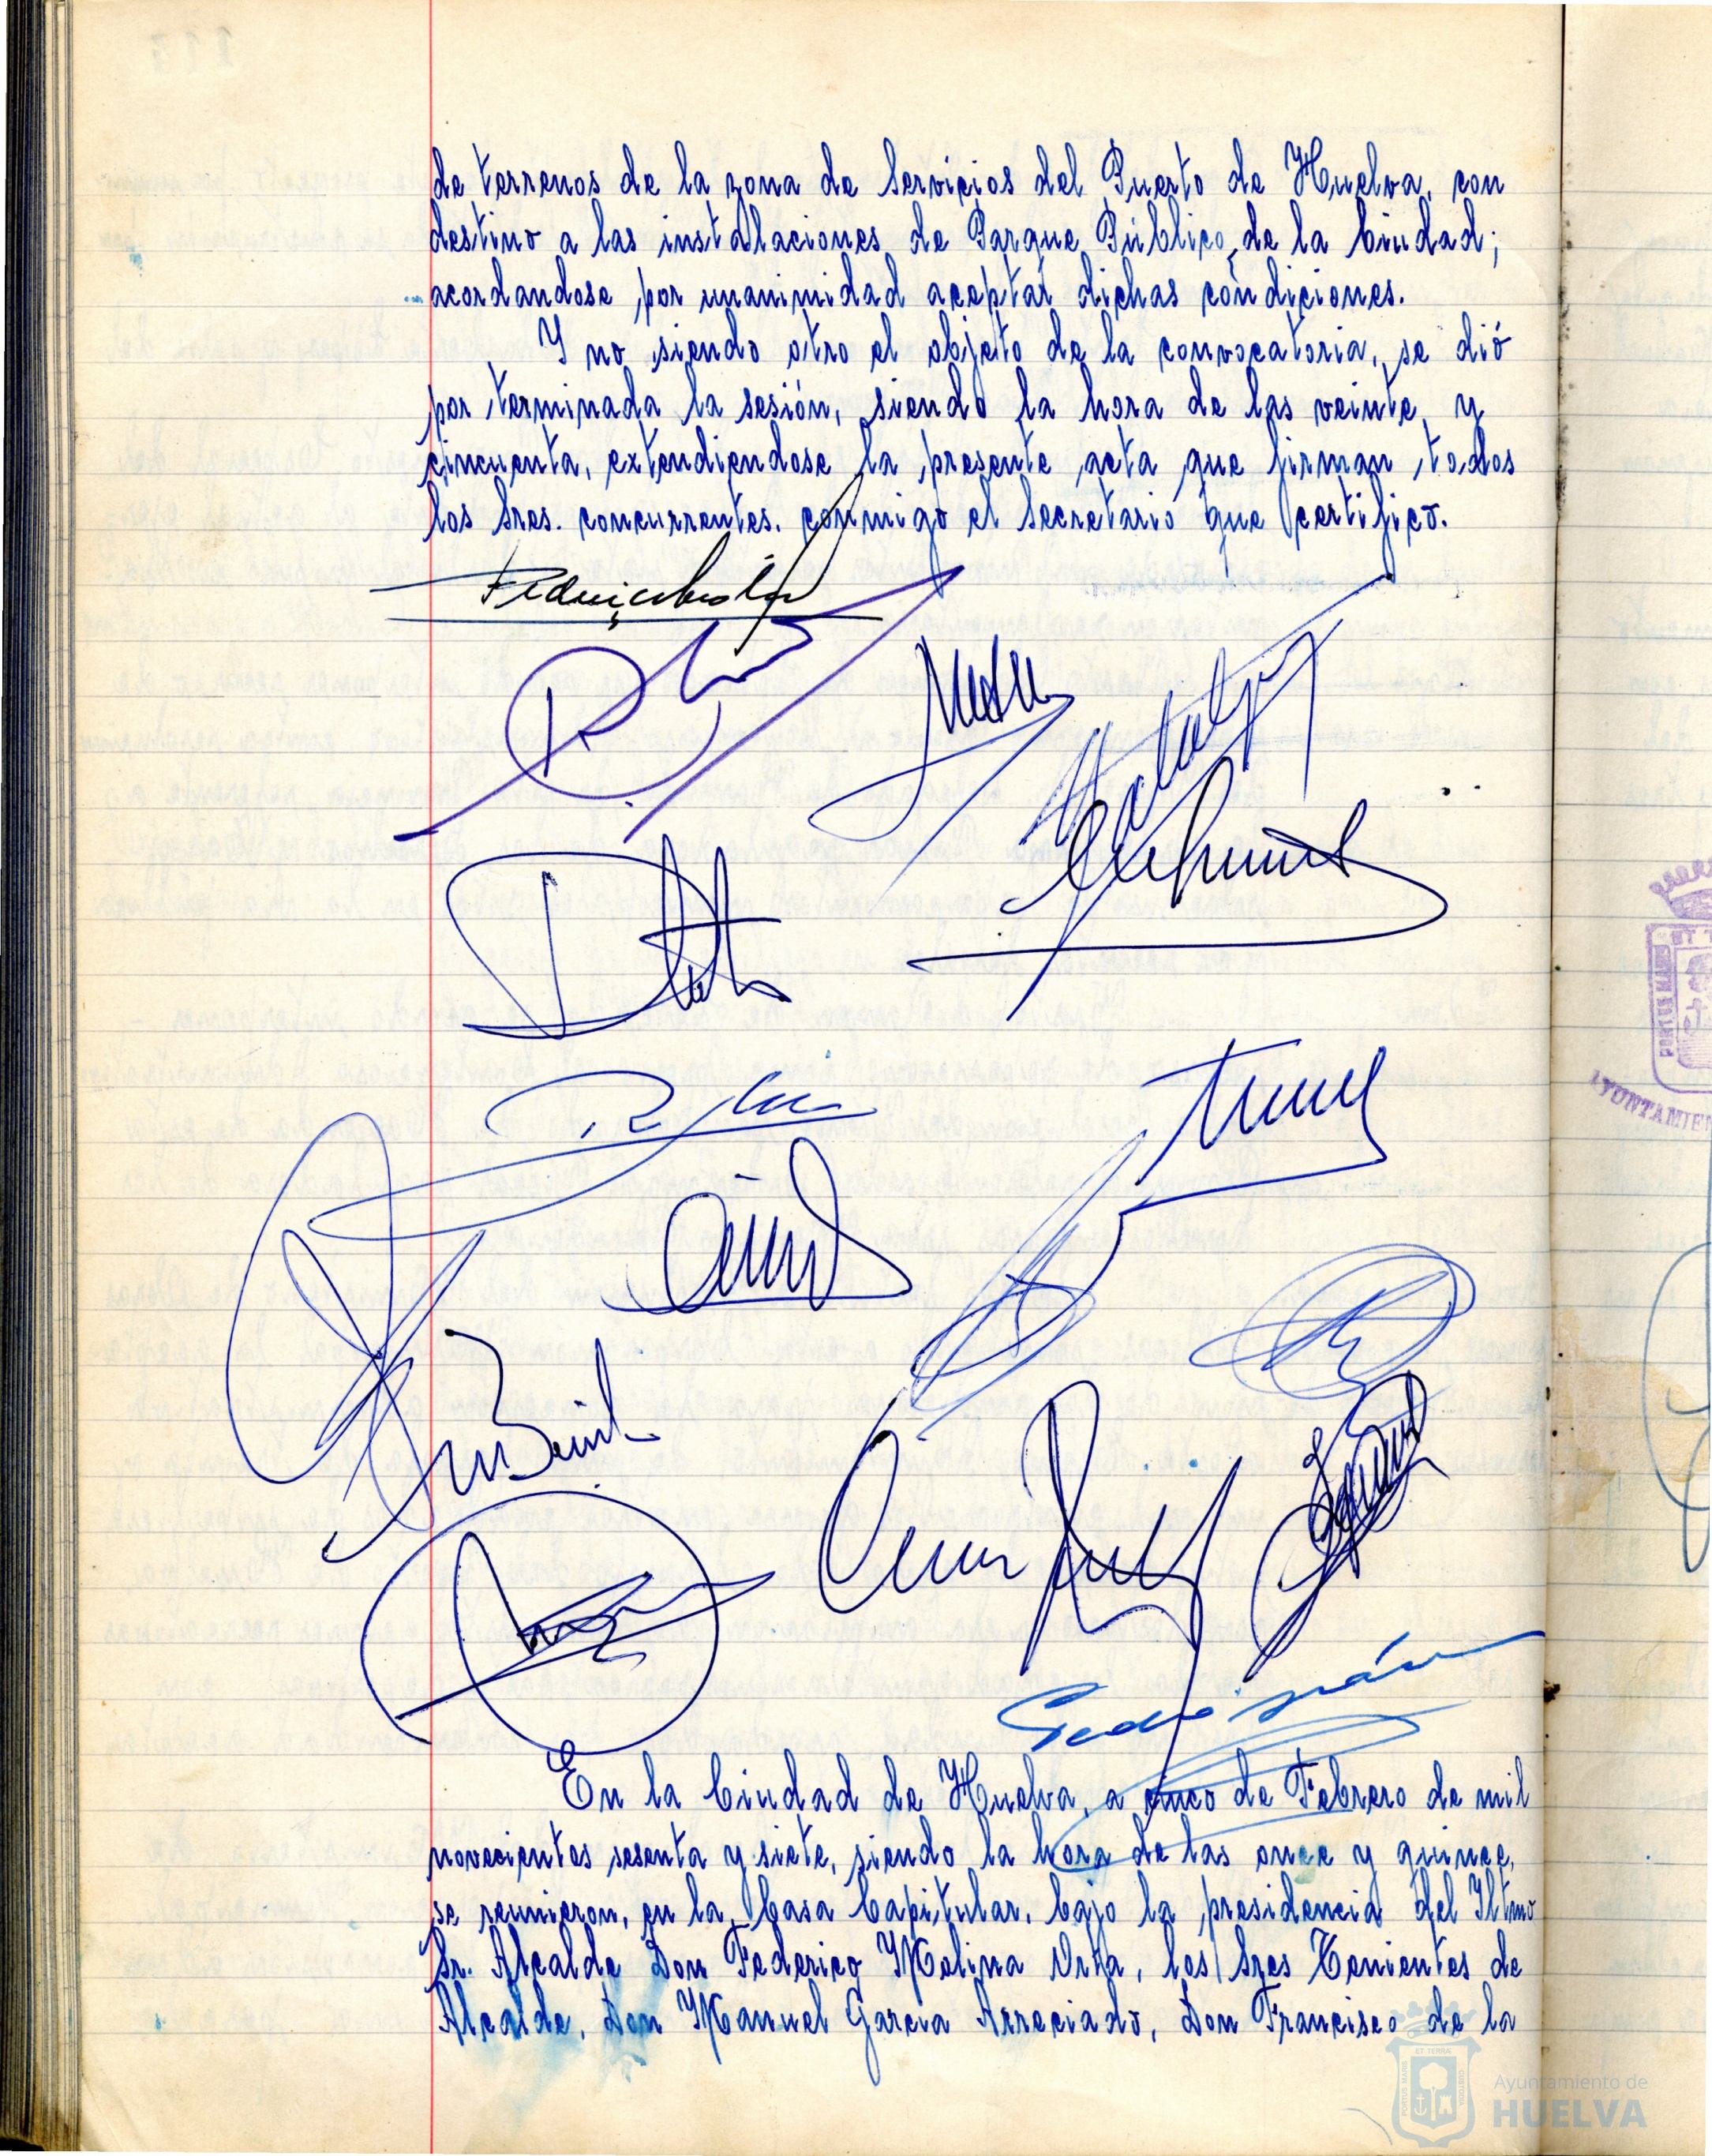 de terrenos de la zona de Servicios del Puerto de Huelva, con
destino a las instalaciones de Parque Público, de la Ciudad;
acordandose por unanimidad aceptar dichas condiciones.
Y no siendo otro el objeto de la convocatoria, se dió
por terminada la sesión, siendo la hora de las veinte y
cincuenta, extendiendose la presente acta que firman todos
los Sres. concurrentes, conmigo el Secretario que certifico.
En la Ciudad de Huelva, a cinco de Febrero de mil
novecientos sesenta y siete, siendo la hora de las once y quince,
se reunieron, en la Casa Capitular, bajo la presidencia del Iltmo
Sr. Alcalde Don Federico Molina Orta, los Sres Tenientes de
Alcalde, Don Manuel Garcia Arreciado, Don Francisco de la
PORTUS MARIS
AYUNTAMIEN
Ayuntamiento de
HUELVA